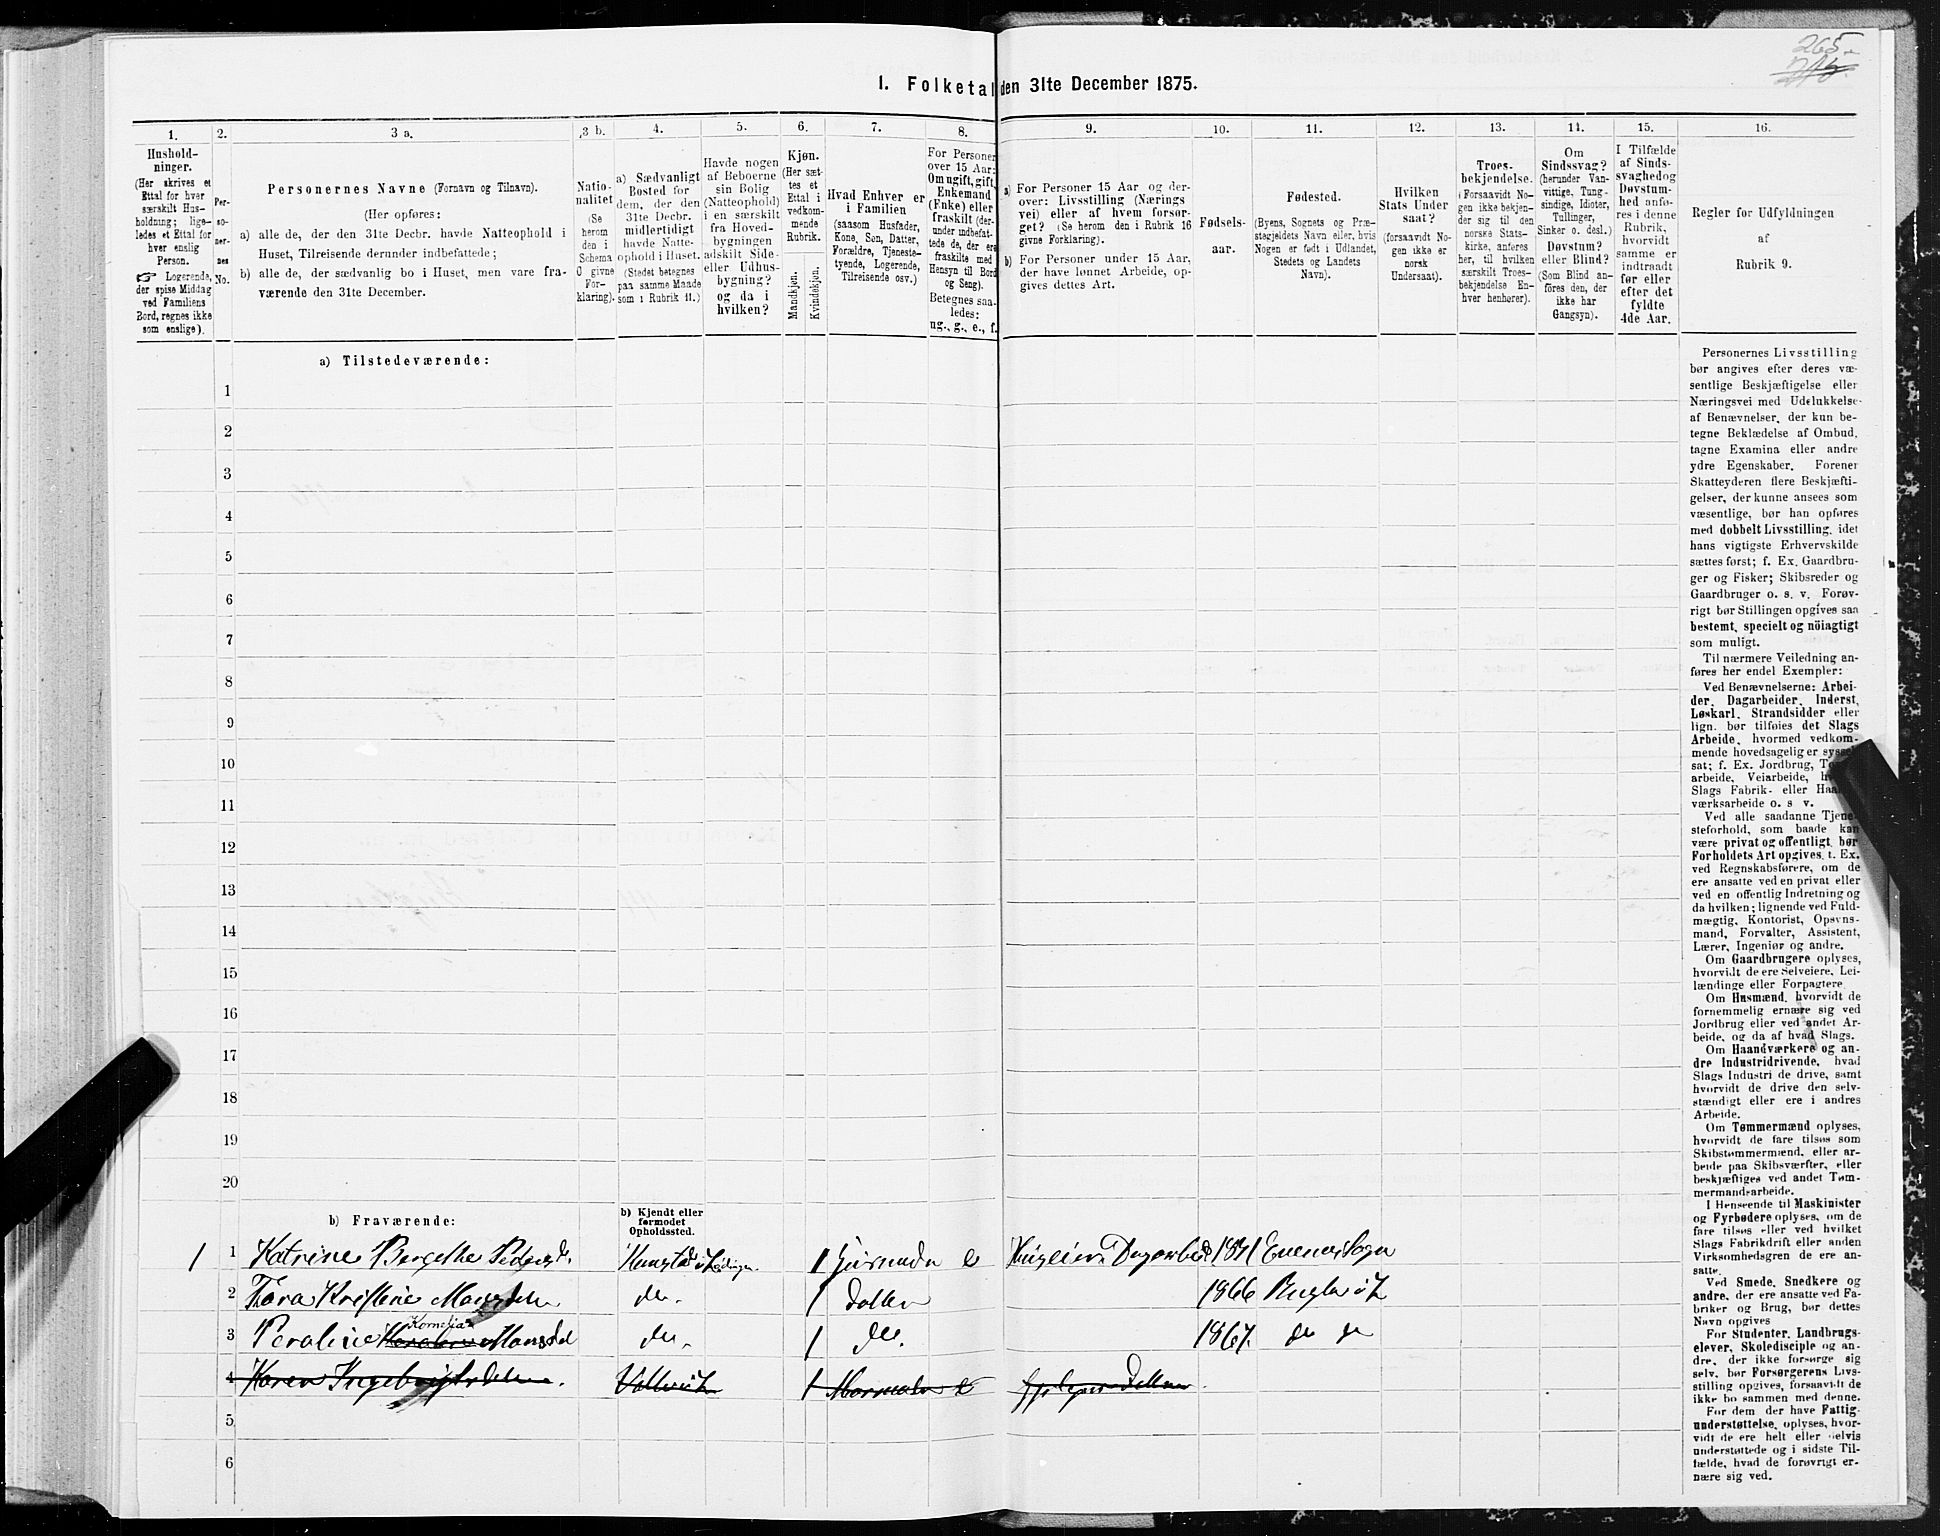 265
1. Folketal den 31te December 1875.
1. 2. 3 a. 3 b. 4. 5. 6. 7. 8. 9. 10. 11. 12. 13. 14. 15. 16.
Hushold-
ninger.
(Her skrives et
Ettal for hver
særskilt Hus-
holdning; lige-
ledes et Ettal for
hver enslig
Person.
☞ Logerende,
der spise Middag
ved Familiens
Bord, regnes ikke
som enslige).
Per-
so-
ner-
nes
No.
Personernes Navne (Fornavn og Tilnavn).
(Her opføres:
a) alle de, der den 31te Decbr. havde Natteophold i
Huset, Tilreisende derunder indbefattede;
b) alle de, der sædvanlig bo i Huset, men vare fra-
værende den 31te December.
Natio-
nalitet
(Se
herom
den i
Schema
O givne
For-
klaring).
a) Sædvanligt
Bosted for
dem, der den
31te Decbr.
midlertidigt
havde Natte-
ophold i Huset.
(Stedet betegnes
paa samme Maade
som i Rubrik 11.)
Havde nogen
af Beboerne
sin Bolig
(Natteophold)
i en særskilt
fra Hoved-
bygningen
adskilt Side-
eller Udhus-
bygning?
og da i
hvilken?
Kjøn.
(Her sæt-
tes et
Ettal i
vedkom-
mende
Rubrik.
Mandkjøn.
Kvindekjøn.
Hvad Enhver er
i Familien
(saasom Husfader,
Kone, Søn, Datter,
Forældre, Tjeneste-
tyende, Logerende,
Tilreisende osv.)
For Personer
over 15 Aar:
Om ugift, gift,
Enkemand
(Enke) eller
fraskilt (der-
under indbefat-
tede de, der ere
fraskilte med
Hensyn til Bord
og Seng).
Betegnes saa-
ledes:
ug., g., e., f.
a) For Personer 15 Aar og der-
over: Livsstilling (Nærings
vei) eller af hvem forsør-
get? (Se herom den i Rubrik 16
givne Forklaring).
b) For Personer under 15 Aar,
der have lønnet Arbeide, op-
gives dettes Art.
Fødsels-
aar.
Fødested.
(Byens, Sognets og Præ-
stegjeldets Navn eller, hvis
Nogen er født i Udlandet,
Stedets og Landets
Navn).
Hvilken
Stats Under
saat?
(forsaavidt No-
gen ikke er
norsk
Undersaat).
Troes-
bekjendelse.
(Forsaavidt No-
gen ikke bekjen-
der sig til den
norske Stats-
kirke, anføres
her, til hvilken
særskilt Troes-
bekjendelse En-
hver henhører).
Om
Sindssvag?
(herunder Van-
vittige, Tung-
sindige, Idioter,
Tullinger,
Sinker o. desl.)
Døvstum?
eller Blind?
(Som Blind an-
föres den, der
ikke har
Gangsyn).
I Tilfælde
af Sinds-
svaghed og
Døvstum-
hed anfø-
res i denne
Rubrik,
hvorvidt
samme er
indtraadt
før eller
efter det
fyldte
4de Aar.
Regler for Udfyldningen
af
Rubrik 9.
a) Tilstedeværende:
1
2
3
4
5
6
7
8
9
10
11
12
13
14
15
16
17
18
19
20
b) Fraværende:
b) Kjendt eller
formodet
Opholdssted.
1 1 Katrine Bergethe Pedersd. 1 e 1841
2 Thora Kristine 1 1866
3 Peroline Kornelia 1 do. 1867
4 Karen 1
5
6
Personernes Livsstilling
bør angives efter deres væ-
sentlige Beskjæftigelse eller
Næringsvei med Udelukkelse
af Benævnelser, der kun be-
tegne Beklædelse af Ombud,
tagne Examina eller andre
ydre Egenskaber. Forener
Skatteyderen flere Beskjæfti-
gelser, der kunne ansees som
væsentlige, bør han opføres
med dobbelt Livsstilling, idet
hans vigtigste Erhvervskilde
sættes først; f. Ex. Gaardbru-
ger og Fisker; Skibsreder og
Gaardbruger o. s. v. Forøv-
rigt bør Stillingen opgives saa
bestemt, specielt og nöiagtigt
som muligt.
Til nærmere Veiledning an-
føres her endel Exempler:
Ved Benævnelserne: Arbei-
der, Dagarbeider, Inderst,
Løskarl, Strandsidder eller
lign. bør tilføies det Slags
Arbeide, hvormed vedkom-
mende hovedsagelig er syssel
sat; f. Ex. Jordbrug,
arbeide, Veiarbeide,
Slags Fabrik- eller
værksarbeide o. s v.
Ved alle saadanne Tjene
steforhold, som baade kan
være privat og offentligt, bør
Forholdets Art opgives, t. Ex.
ved Regnskabsførere, om de
ere ansatte ved en privat eller
ved en offentlig Indretning og
da hvilken; lignende ved Fuld-
mægtig, Kontorist, Opsyns-
mand, Forvalter, Assistent,
Lærer, Ingeniør og andre.
Om Gaardbrugere oplyses,
hvorvidt de ere Selveiere, Lei-
lændinge eller Forpagtere.
Om Husmænd, hvorvidt de
fornemmelig ernære sig ved
Jordbrug eller ved andet Ar-
beide, og da af hvad Slags.
Om Haandværkere og an-
dre Industridrivende, hvad
Slags Industri de drive, samt
hvorvidt de drive den selv-
stændigt eller ere i andres
Arbeide.
Om Tømmermænd oplyses,
hvorvidt de fare tilsøs som
Skibstømmermænd, eller ar-
beide paa Skibsværfter, eller
beskjæftiges ved andet Tøm-
mermandsarbeide.
I Henseende til Maskinister
og Fyrbødere oplyses, om de
fare tilsøs eller ved hvilket
Slags Fabrikdrift eller anden
Virksomhedsgren de ere an-
satte.
Ved Smede, Snedkere og
andre, der ere ansatte ved Fa-
briker og Brug, bør dettes
Navn opgives
For Studenter, Landbrugs-
elever, Skoledisciple og an-
dre, der ikke forsørge sig
selv, bør Forsørgerens Livs-
stilling opgives, forsaavidt de
ikke bo sammen med denne.
For dem der have Fattig-
understøttelse, oplyses, hvor-
vidt de ere helt eller delvis
understøttede og i sidste Til-
fælde, hvad de forøvrigt er-
nære sig ved.